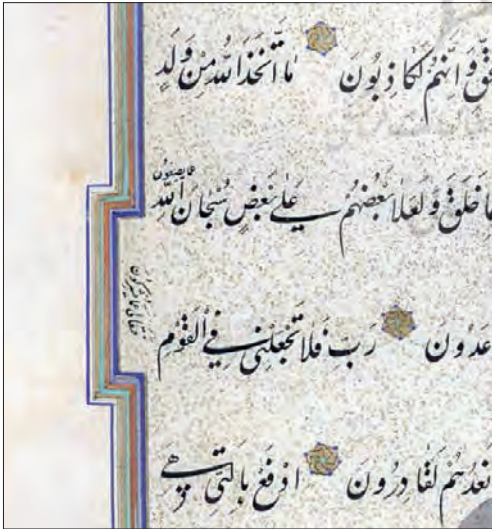 ق وَانّهُمْ لَكاذِبُونَ مَا اتَّخَذَ اللهُ مِنْ وَلَدٍ
عما يصفون
ما خَلَقَ وَلَعَلا بَعْضُهُم عَلى بَعْضٍ سُبْحَانَ اللهِ
فتعالى عما يشركون
عَدُونَ رَبِّ فَلا تَجْعَلْنِي فِي الْقَوْمِ
نَعِدُهُمْ لَقَادِرُونَ ادْفَعْ بِالَّتِي هِيَ